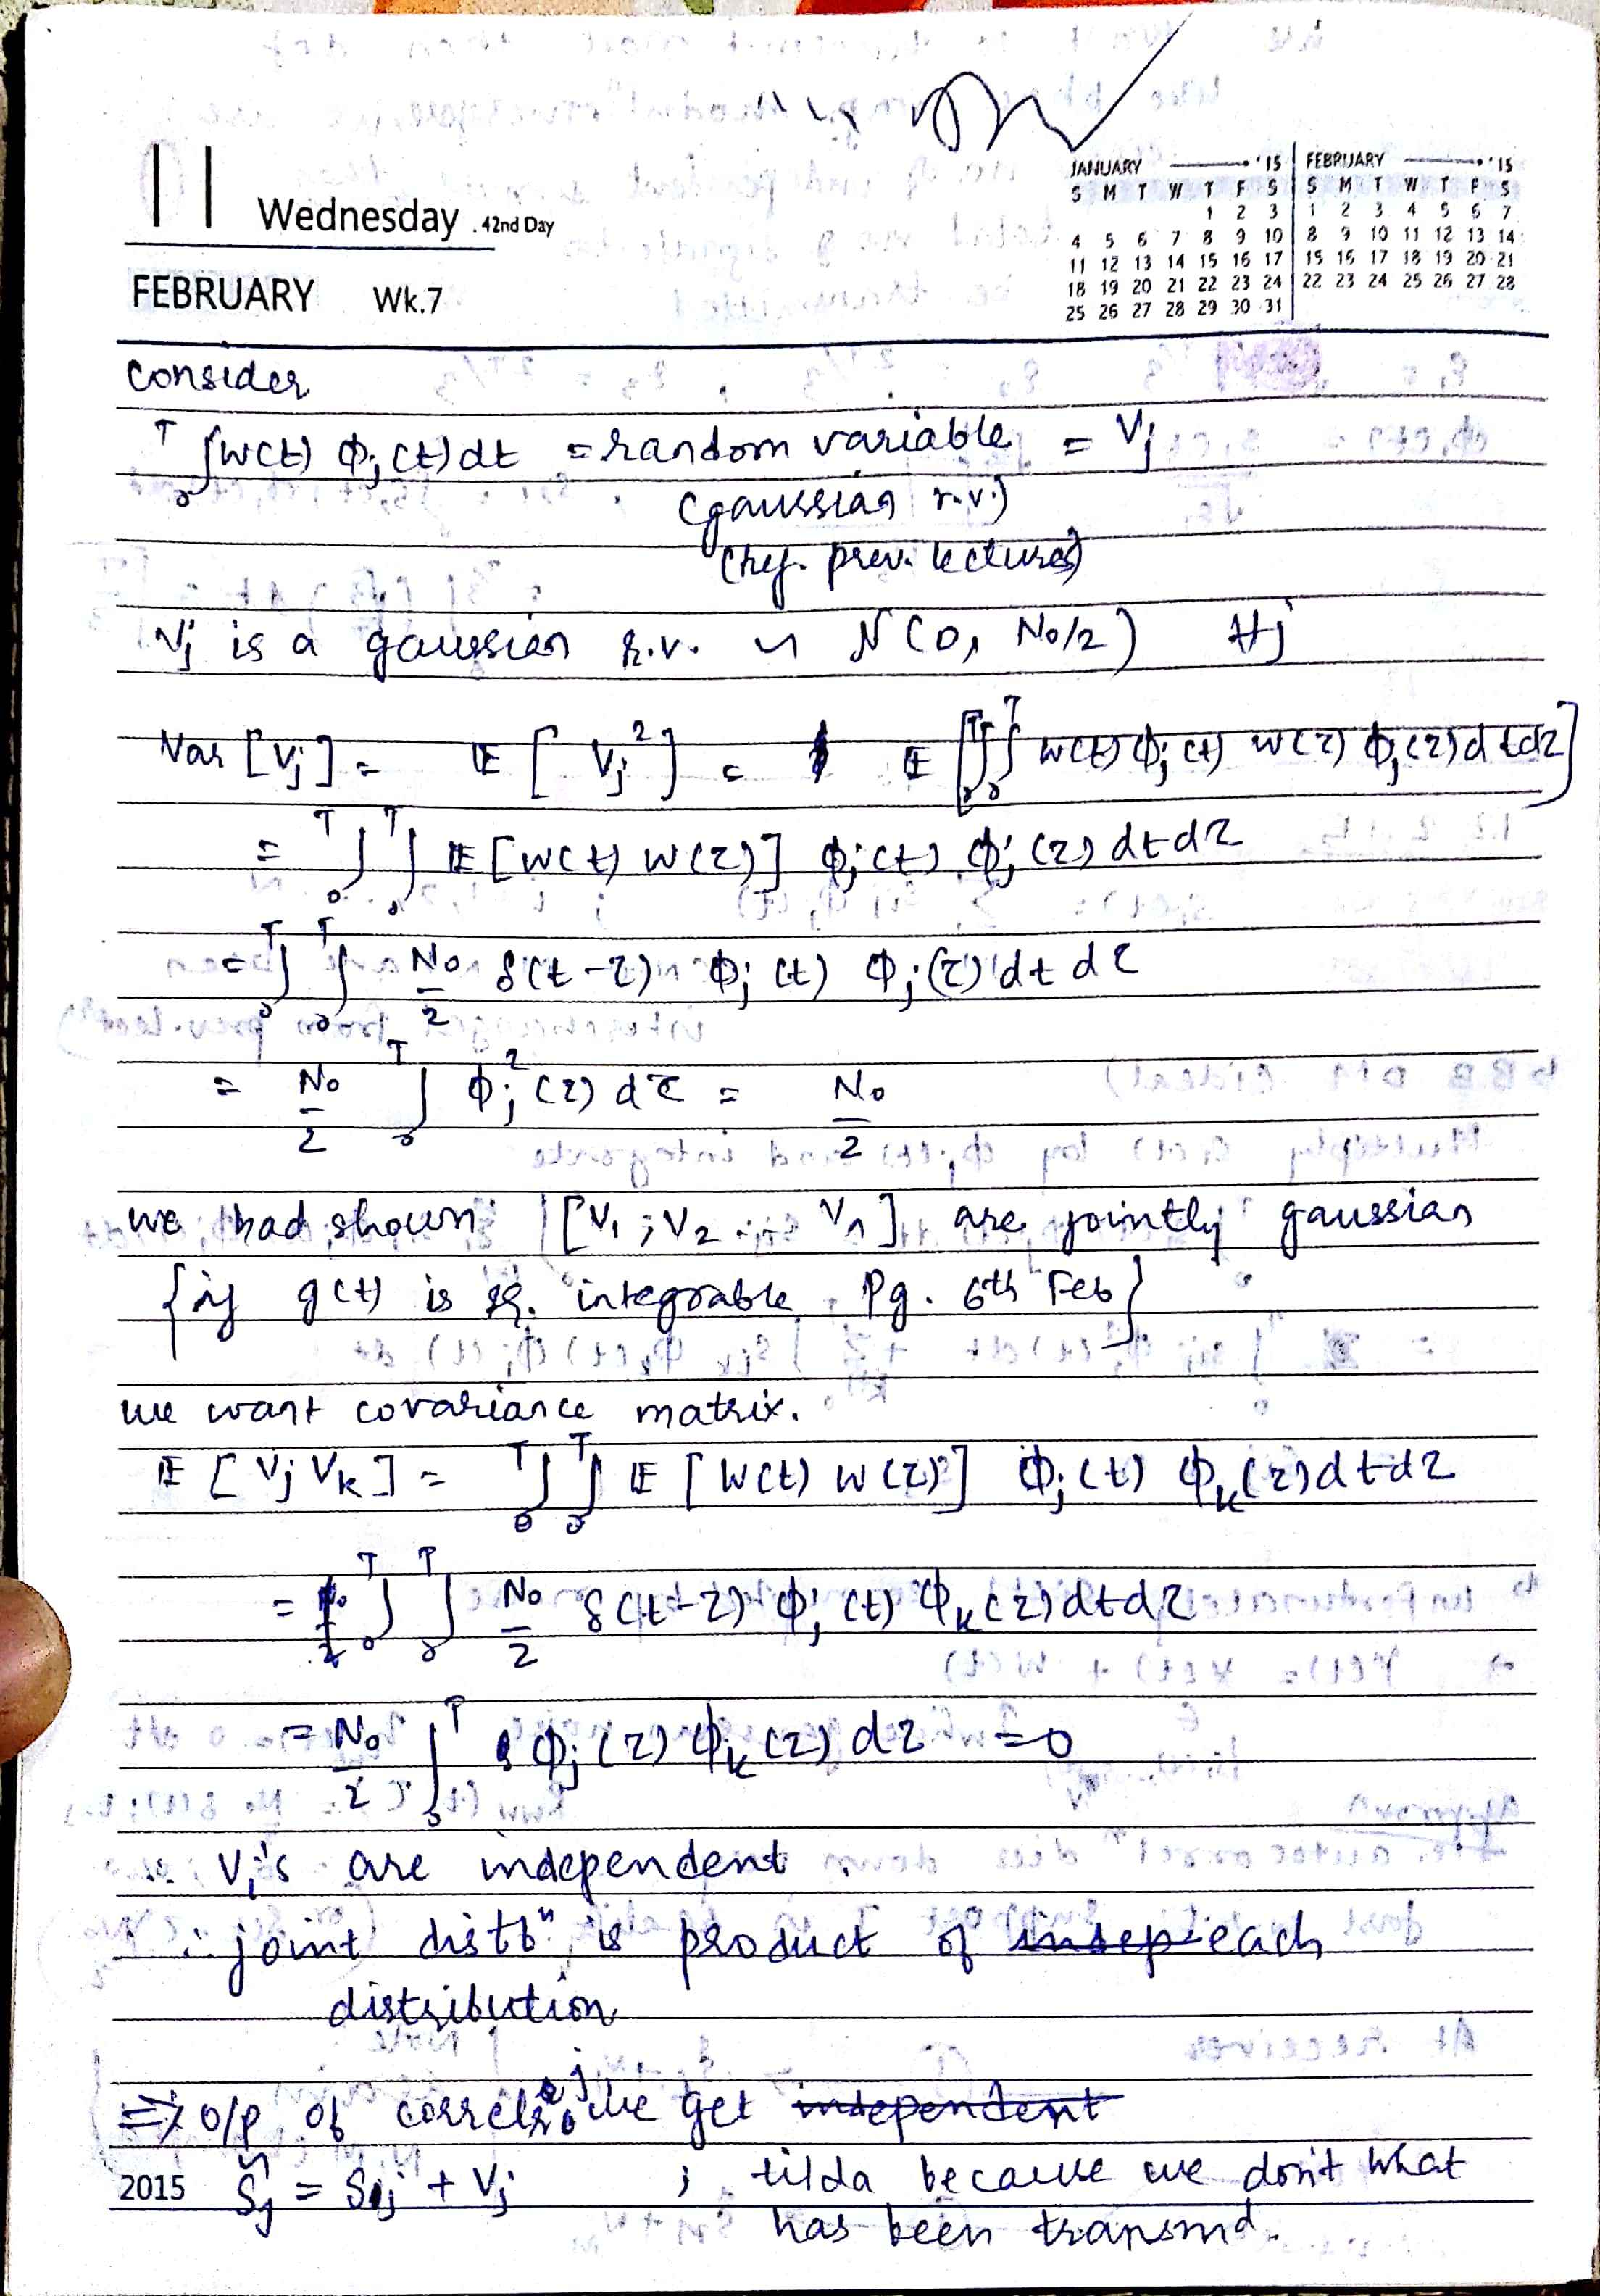 11 Wednesday . 42nd Day
FEBRUARY Wk.7
JANUARY '15
S M T W T F S
1 2 3
4 5 6 7 8 9 10
11 12 13 14 15 16 17
18 19 20 21 22 23 24
25 26 27 28 29 30 31
FEBRUARY '15
S M T W T F S
1 2 3 4 5 6 7
8 9 10 11 12 13 14
15 16 17 18 19 20 21
22 23 24 25 26 27 28
consider
₀∫ᵀ w(t) Φj(t) dt = random variable = Vj
(gaussian r.v.)
(ref. prev. lectures)
Vj is a gaussian r.v. ~ N(0, No/2) ∀j
Var [Vj] = E [Vj²] = E [₀∫ᵀ ₀∫ᵀ w(t) Φj(t) w(τ) Φj(τ) dt dτ]
= ₀∫ᵀ ₀∫ᵀ E [w(t) w(τ)] Φj(t) Φj(τ) dt dτ
= ₀∫ᵀ ₀∫ᵀ No/2 δ(t-τ) Φj(t) Φj(τ) dt dτ
= No/2 ₀∫ᵀ Φj²(τ) dτ = No/2
we had shown [V1, V2 ... Vn] are jointly gaussian
{if g(t) is sq. integrable. Pg. 6th Feb}
we want covariance matrix.
E [Vj Vk] = ₀∫ᵀ ₀∫ᵀ E [w(t) w(τ)] Φj(t) Φk(τ) dt dτ
= ₀∫ᵀ ₀∫ᵀ No/2 δ(t-τ) Φj(t) Φk(τ) dt dτ
= No/2 ₀∫ᵀ Φj(τ) Φk(τ) dτ = 0
∴ Vj's are independent
∴ joint distbⁿ is product of indep each
distribution
⇒ o/p of j we get independent
S̃j = Sij + Vj ; tilda because we don't what
has been transmd.
2015